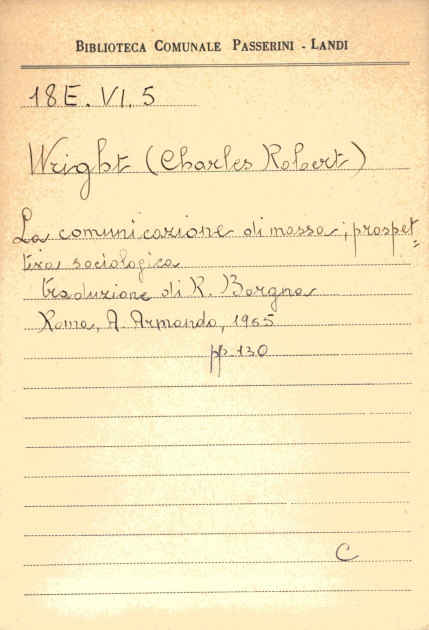 BIBLIOTECA COMUNALE PASSERINI - LANDI
18E. VI. 5
Wright (Charles Robert)
La comunicazione di massa; prospet=
tiva sociologica
traduzione di R. Borgna
Roma, A. Armando, 1965
pp. 130
C